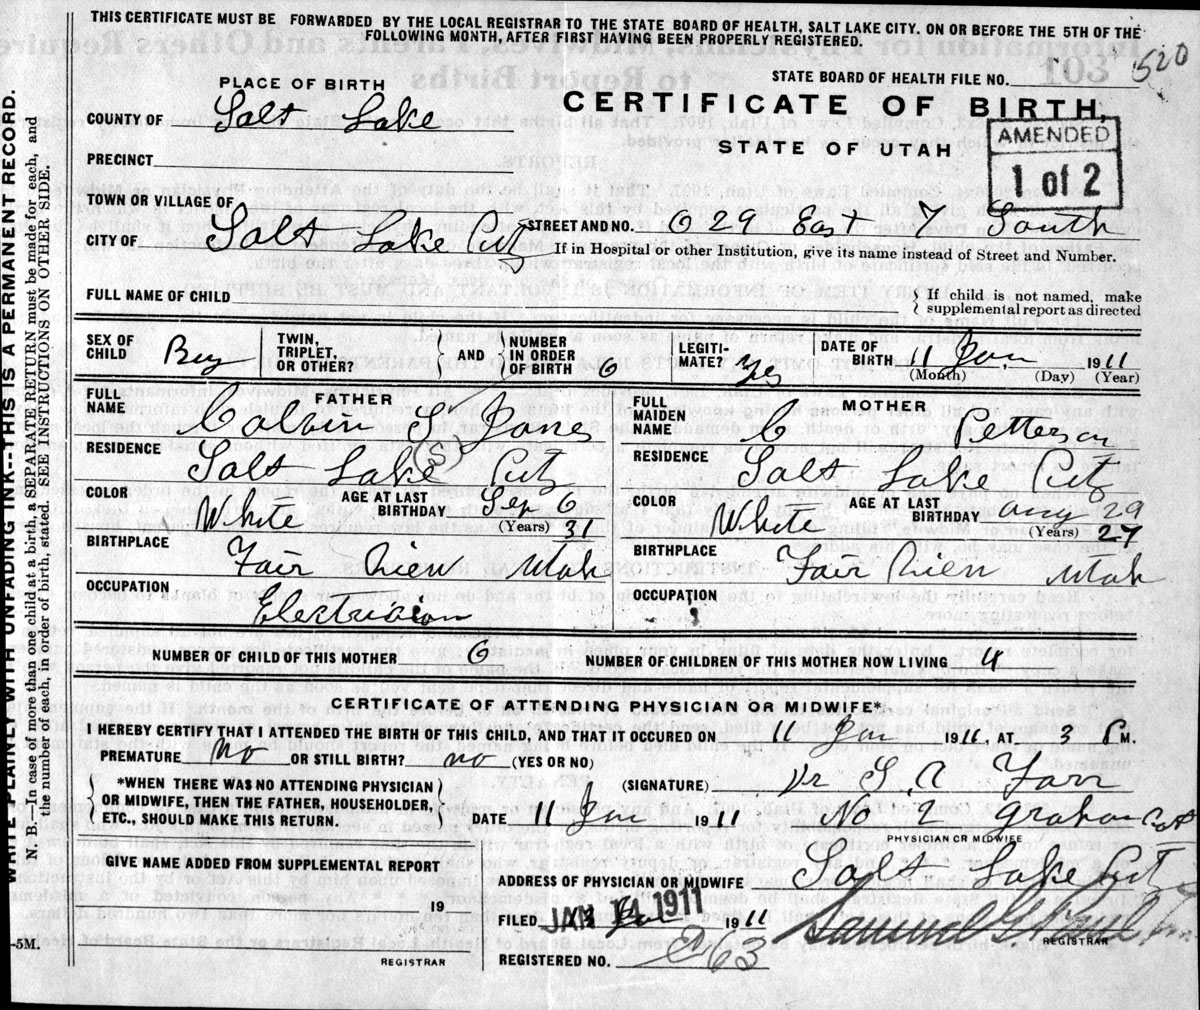 THIS CERTIFICATE MUST BE FORWARDED BY THE LOCAL REGISTRAR TO THE STATE BOARD OF HEALTH, SALT LAKE CITY. ON OR BEFORE THE 5TH OF THE
FOLLOWING MONTH, AFTER FIRST HAVING BEEN PROPERLY REGISTERED.
STATE BOARD OF HEALTH FILE NO. 103 520
PLACE OF BIRTH
CERTIFICATE OF BIRTH,
COUNTY OF Salt Lake
STATE OF UTAH
AMENDED
1 of 2
PRECINCT
TOWN OR VILLAGE OF
CITY OF Salt Lake City STREET AND NO. 629 East 7 South
If in Hospital or other Institution, give its name instead of Street and Number.
FULL NAME OF CHILD
If child is not named, make
supplemental report as directed
SEX OF CHILD Boy TWIN, TRIPLET, OR OTHER? AND NUMBER IN ORDER OF BIRTH 6 LEGITI-MATE? Yes DATE OF BIRTH 11 Jan, 1911
(Month) (Day) (Year)
FATHER
FULL NAME Calvin S Jones
RESIDENCE Salt Lake City
COLOR White AGE AT LAST BIRTHDAY Sep 6 31
(Years)
BIRTHPLACE Fair View Utah
OCCUPATION Electrician
MOTHER
FULL MAIDEN NAME C Petterson
RESIDENCE Salt Lake City
COLOR White AGE AT LAST BIRTHDAY Aug 29 27
(Years)
BIRTHPLACE Fair View Utah
OCCUPATION
NUMBER OF CHILD OF THIS MOTHER 6 NUMBER OF CHILDREN OF THIS MOTHER NOW LIVING 4
CERTIFICATE OF ATTENDING PHYSICIAN OR MIDWIFE*
I HEREBY CERTIFY THAT I ATTENDED THE BIRTH OF THIS CHILD, AND THAT IT OCCURED ON 11 Jan 1911, AT 3 P M.
PREMATURE No OR STILL BIRTH? no (YES OR NO)
*WHEN THERE WAS NO ATTENDING PHYSICIAN
OR MIDWIFE, THEN THE FATHER, HOUSEHOLDER,
ETC., SHOULD MAKE THIS RETURN.
(SIGNATURE) Dr S A Farr
DATE 11 Jan 1911 No 2 Graham Cort
PHYSICIAN OR MIDWIFE
GIVE NAME ADDED FROM SUPPLEMENTAL REPORT
19
REGISTRAR
ADDRESS OF PHYSICIAN OR MIDWIFE Salt Lake City
FILED JAN 1911 Jan 1911
REGISTRAR
REGISTERED NO. 263
WRITE PLAINLY WITH UNFADING INK--THIS IS A PERMANENT RECORD.
N. B.—In case of more than one child at a birth, a SEPARATE RETURN must be made for each, and
the number of each, in order of birth, stated. SEE INSTRUCTIONS ON OTHER SIDE.
-5M.